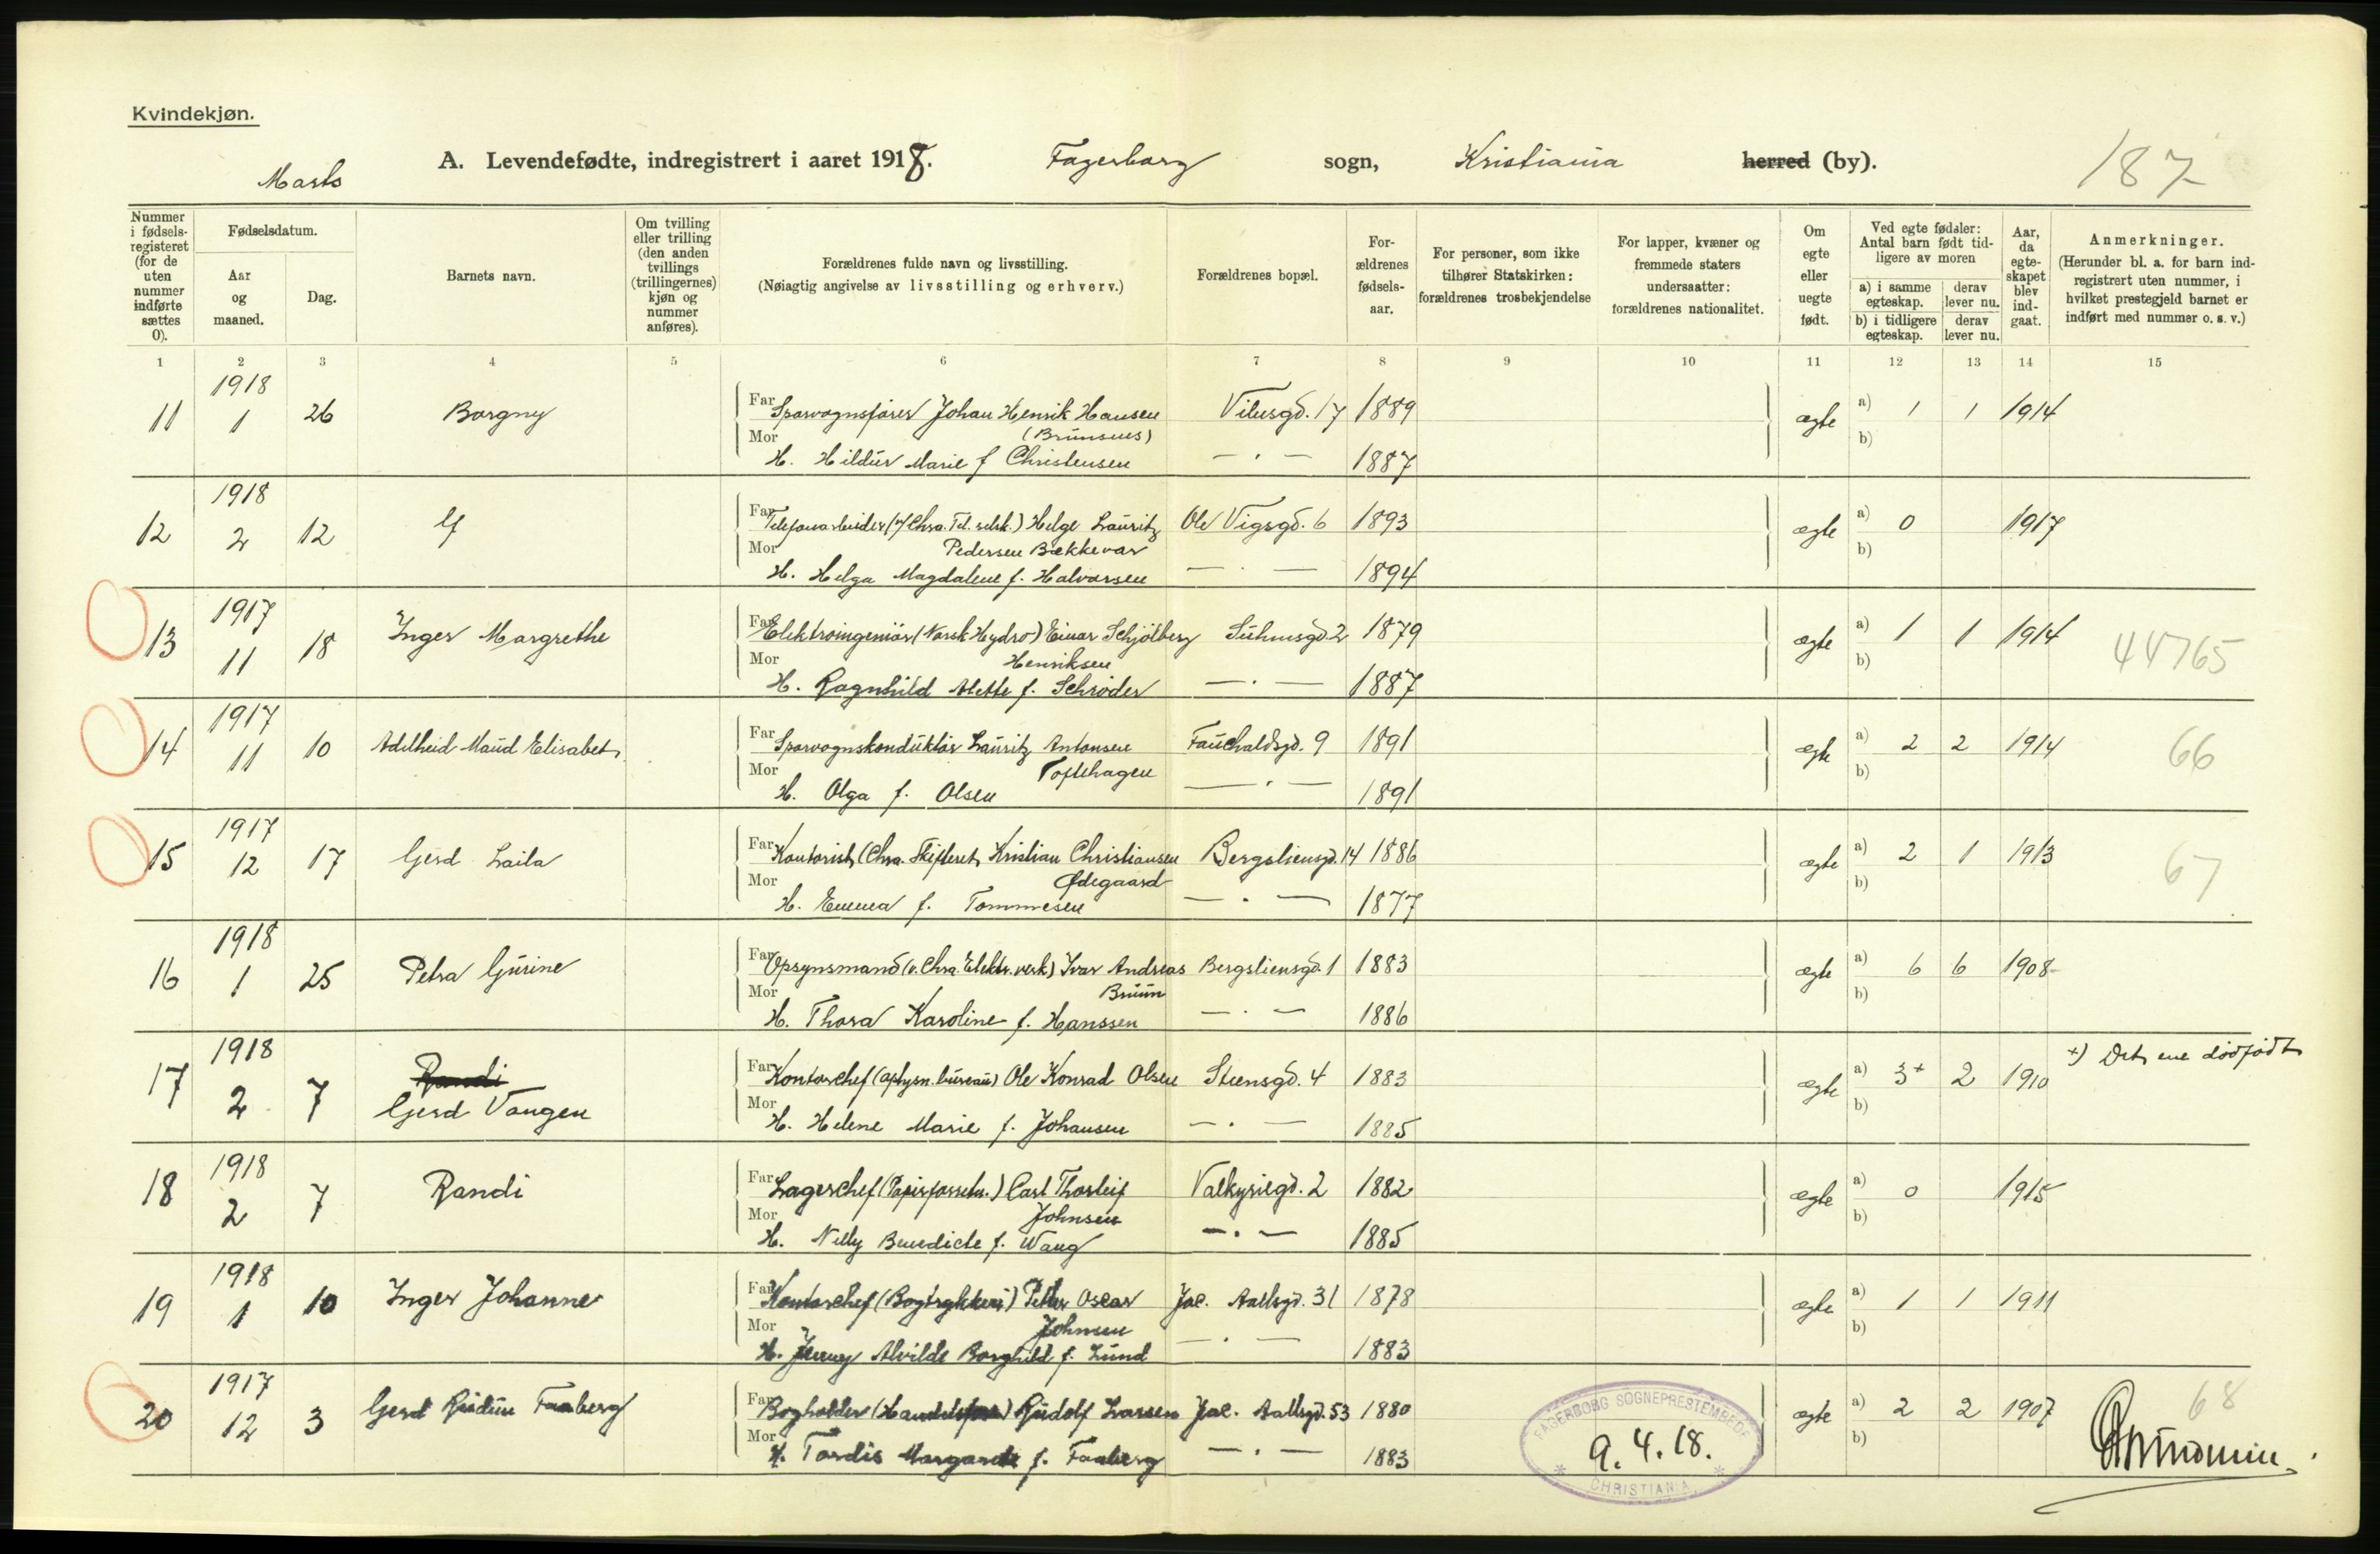 Kvindekjøn.
A. Levendefødte, indregistrert i aaret 1918. Fagerborg sogn, Kristiania herred (by).
Marts
187
Nummer i fødselsregisteret (for de uten nummer indførte sættes 0).
Fødselsdatum.
Aar og maaned.
Dag.
Barnets navn.
Om tvilling eller trilling (den anden tvillings (trillingernes) kjøn og nummer anføres).
Forældrenes fulde navn og livsstilling.
(Nøiagtig angivelse av livsstilling og erhverv.)
Forældrenes bopæl.
Forældrenes fødselsaar.
For personer, som ikke tilhører Statskirken: forældrenes trosbekjendelse
For lapper, kvæner og fremmede staters undersaatter: forældrenes nationalitet.
Om egte eller uegte født.
Ved egte fødsler: Antal barn født tidligere av moren
a) i samme egteskap.
derav lever nu.
b) i tidligere egteskap.
derav lever nu.
Aar, da egteskapet blev indgaat.
Anmerkninger.
(Herunder bl. a. for barn indregistrert uten nummer, i hvilket prestegjeld barnet er indført med nummer o. s. v.)
1 2 3 4 5 6 7 8 9 10 11 12 13 14 15
1918
11 1 26 Borgny Far Sporvognsfører Johan Henrik Hansen Vibesgd. 17 1889 egte a) 1 1 1914
(Brunsens)
Mor b)
H. Hildur Marie f Christensen — · — 1887
1918
12 2 12 Far Telefonarbeider (v/ Chra. Tel. selsk.) Helge Lauritz Ole Vigsgd. 6 1893 egte a) 0 1917
Mor Pedersen Bækkevar b)
H. Helga Magdalene f. Halvorsen — · — 1894
1917
13 11 18 Inger Margrethe Far Elektroingeniør (Norsk Hydro) Einar Schjölberg Suhmsgd. 2 1879 egte a) 1 1 1914 44765
Mor Henriksen b)
H. Ragnhild Alette f. Schrøder — · — 1887
1917
14 11 10 Adelheid Maud Elisabet Far Sporvognskonduktør Lauritz Antonsen Fauchaldsgd. 9 1891 egte a) 2 2 1914 66
Mor Toftehagen b)
H. Olga f. Olsen — · — 1891
1917
15 12 17 Gerd Laila Far Kontorist (Chra. Skifteret) Kristian Christiansen Bergsliensgd. 14 1886 egte a) 2 1 1913 67
Mor Ødegaard b)
H. Emma f. Tommesen — · — 1877
1918
16 1 25 Petra Gurine Far Opsynsmand (v. Chra. Elektr. verk) Ivar Andreas Bergsliensgd. 1 1883 egte a) 6 6 1908
Mor Bruun b)
H. Thora Karoline f. Hanssen — · — 1886
1918
17 2 7 Randi Far Kontorchef (oplysn. bureau) Ole Konrad Olsen Stensgd. 4 1883 egte a) 3+ 2 1910 +) Det ene dødfødt
Gerd Vangen
Mor b)
H. Helene Marie f. Johansen — · — 1885
1918
18 2 7 Randi Far Lagerchef (Papirforretn.) Carl Thorleif Valkyriegd. 2 1882 egte a) 0 1915
Mor Johnsen b)
H. Nelly Benedicte f. Wang — · — 1885
1918
19 1 10 Inger Johanne Far Kontorchef (Bogtrykkeri) Petter Oscar Jac. Aallsgd. 31 1878 egte a) 1 1 1911
Mor Johnsen b)
H. Jenny Alvilde Borghild f. Lund — · — 1883
1917
20 12 3 Gerd Reidun Faaberg Far Bogholder Rudolf Larsen Jac. Aallsgd. 53 1880 egte a) 2 2 1907 68
Mor b)
H. Tordis Margarete f. Faaberg — · — 1883
FAGERBORG SOGNEPRESTEMBEDE
9.4.18.
* CHRISTIANIA. *